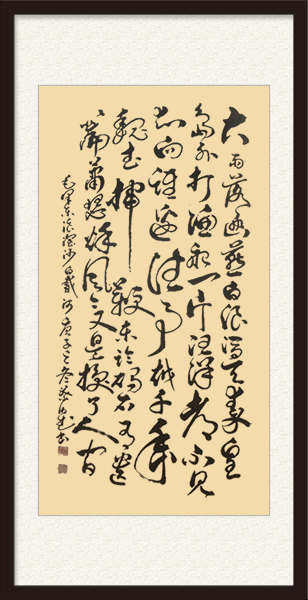 大雨落幽燕白浪滔天秦皇
岛外打渔船一片汪洋都不见
知向谁边往事越千年
魏武挥鞭东临碣石有遗
篇萧瑟秋风今又是换了人间
毛泽东浪淘沙北戴河庚子之冬书